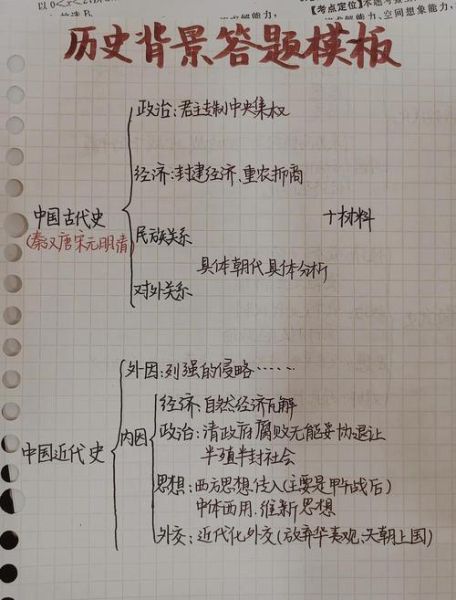 以0<x<2
故选B
求解能力,
【考点定位】本题考查
求解能力、空间想象能力,
历史背景答题模板
中国古代史
(秦汉唐宋元明清)
政治:君主专制中央集权
经济:封建经济、重农抑商
民族关系
具体朝代具体分析
对外关系
+材料
中国近代史
外因:列强的侵略……
内因
经济:自然经济瓦解
政治:清政府腐败无能妥协退让
半殖半封社会
思想:西方思想传入(主要是甲午战后)
中体西用、维新思想
外交:近代化外交(放弃华夷观、天朝上国)